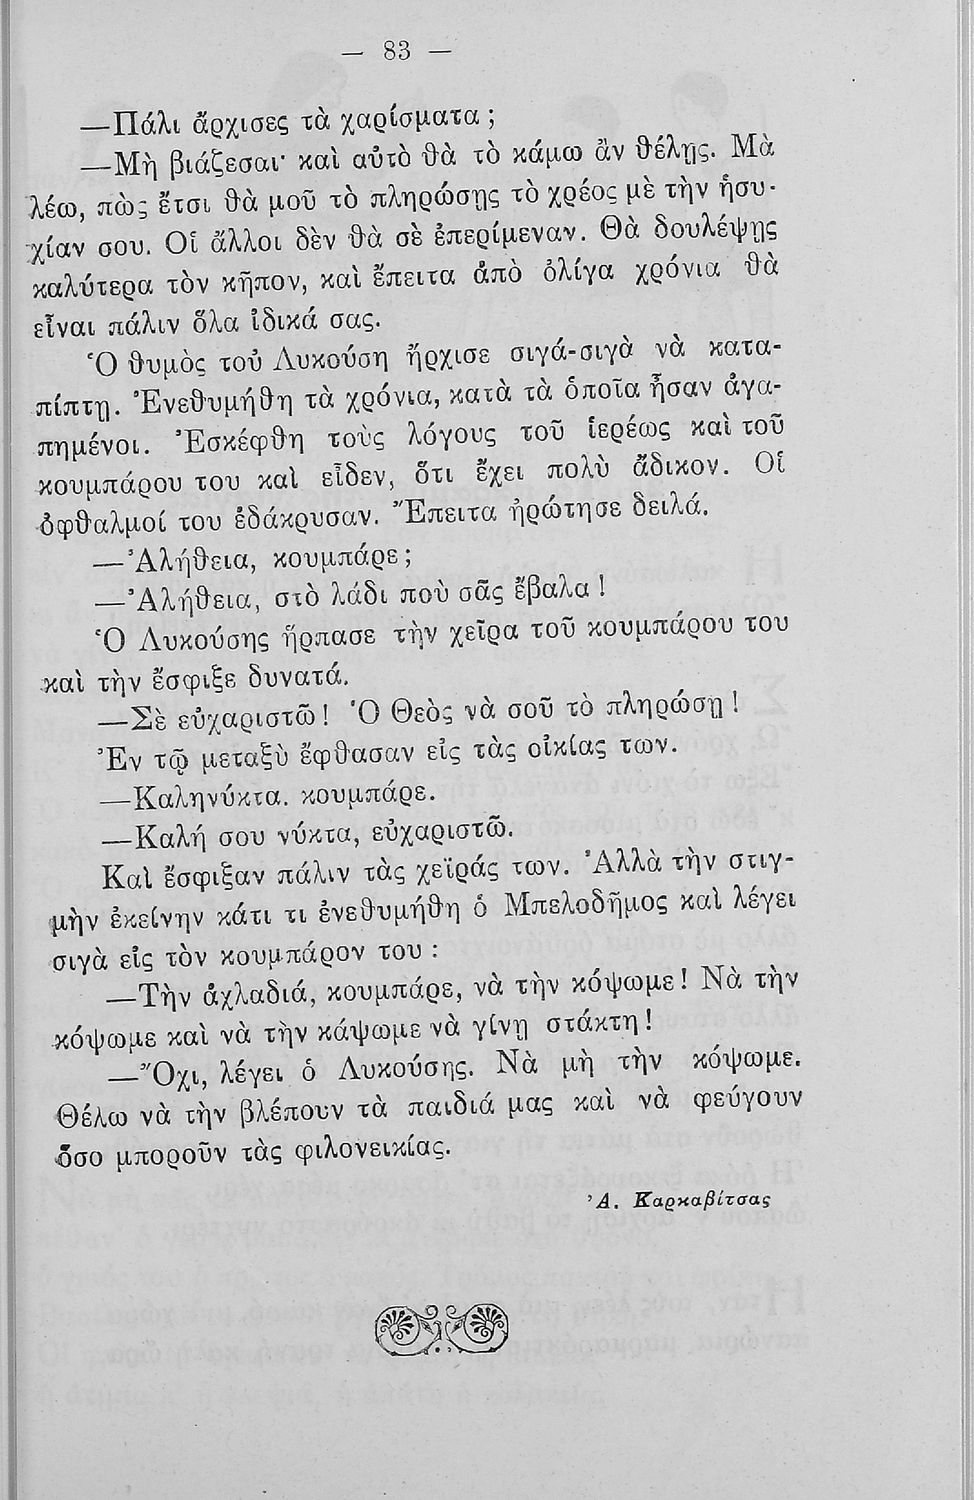 — 83 —
—Πάλι ἄρχισες τὰ χαρίσματα ;
—Μὴ βιάζεσαι· καὶ αὐτὸ θὰ τὸ κάμω ἂν θέλῃς. Μὰ
λέω, πὼς ἔτσι θὰ μοῦ τὸ πληρώσῃς τὸ χρέος μὲ τὴν ἡσυ-
χίαν σου. Οἱ ἄλλοι δὲν θὰ σὲ ἐπερίμεναν. Θὰ δουλέψῃς
καλύτερα τὸν κῆπον, καὶ ἔπειτα ἀπὸ ὀλίγα χρόνια θὰ
εἶναι πάλιν ὅλα ἰδικά σας.
Ὁ θυμὸς τοῦ Λυκούση ἤρχισε σιγά-σιγὰ νὰ κατα-
πίπτῃ. Ἐνεθυμήθη τὰ χρόνια, κατὰ τὰ ὁποῖα ἦσαν ἀγα-
πημένοι. Ἐσκέφθη τοὺς λόγους τοῦ ἱερέως καὶ τοῦ
κουμπάρου του καὶ εἶδεν, ὅτι ἔχει πολὺ ἄδικον. Οἱ
ὀφθαλμοί του ἐδάκρυσαν. Ἔπειτα ἠρώτησε δειλά.
—Ἀλήθεια, κουμπάρε ;
—Ἀλήθεια, στὸ λάδι ποὺ σᾶς ἔβαλα !
Ὁ Λυκούσης ἥρπασε τὴν χεῖρα τοῦ κουμπάρου του
καὶ τὴν ἔσφιξε δυνατά.
—Σὲ εὐχαριστῶ ! Ὁ Θεὸς νὰ σοῦ τὸ πληρώσῃ !
Ἐν τῷ μεταξὺ ἔφθασαν εἰς τὰς οἰκίας των.
—Καληνύκτα. κουμπάρε.
—Καλή σου νύκτα, εὐχαριστῶ.
Καὶ ἔσφιξαν πάλιν τὰς χεῖράς των. Ἀλλὰ τὴν στιγ-
μὴν ἐκείνην κάτι τι ἐνεθυμήθη ὁ Μπελοδῆμος καὶ λέγει
σιγὰ εἰς τὸν κουμπάρον του :
—Τὴν ἀχλαδιά, κουμπάρε, νὰ τὴν κόψωμε ! Νὰ τὴν
κόψωμε καὶ νὰ τὴν κάψωμε νὰ γίνῃ στάκτη !
—Ὄχι, λέγει ὁ Λυκούσης. Νὰ μὴ τὴν κόψωμε.
Θέλω νὰ τὴν βλέπουν τὰ παιδιά μας καὶ νὰ φεύγουν
ὅσο μποροῦν τὰς φιλονεικίας.
Ἀ. Καρκαβίτσας